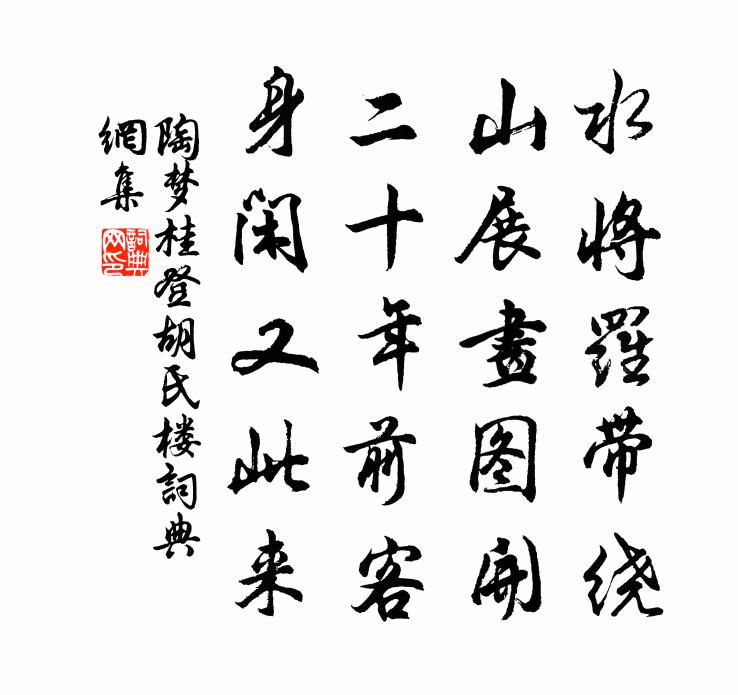 水将羅带绕
山展畫图開
二十年前客
身闲又此来
陶梦桂登胡氏楼詞典
網集
詞典
网印